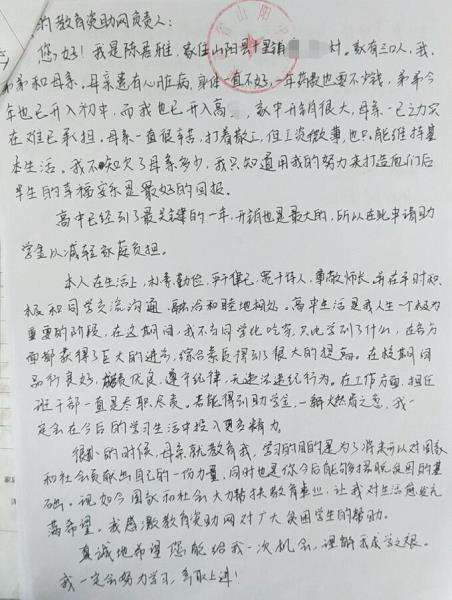 的教育资助网负责人：
您好！我是陈慧雅，家住山阳县十里铺 村。家有三口人，我、
弟弟和母亲。母亲患有心脏病，身体一直不好，一年药费也要不少钱，弟弟今
年也已开入初中，而我也已开入高 ，家中开销很大，母亲一己之力实
在难已承担。母亲一直很辛苦，打着散工，但工资微薄，也只能维持基
本生活。我不知欠了母亲多少，我只知道用我的努力来打造她们后
半生的幸福安乐是最好的回报。
高中已经到了最关键的一年，开销也是最大的，所以在此申请助
学金以减轻家庭负担。
本人在生活上，朴素勤俭，严于律己，宽于待人，尊敬师长，并在平时积
极和同学交流沟通，融洽和睦地相处。高中生活是我人生一个极为
重要的阶段，在这期间，我不与同学比吃穿，只比学到了什么，在各方
面都获得了巨大的进步，综合素质得到很大的提高。在校期间
品行良好，成绩优良，遵守纪律，无违法违纪行为。在工作方面，担任
班干部一直是尽职尽责。若能得到助学金，一解燃眉之急，我一
定会在今后的学习生活中投入更多精力。
很小的时候，母亲就教育我，学习的目的是为了将来可以对国家
和社会贡献出自己的一份力量，同时也是你今后能够摆脱贫困的基
础。现如今国家和社会大力帮扶教育事业，让我对生活愈发充
满希望。我感激教育资助网对广大贫困学生的帮助。
真诚地希望您能给我一次机会，理解我求学之艰。
我一定会努力学习，争取上进！